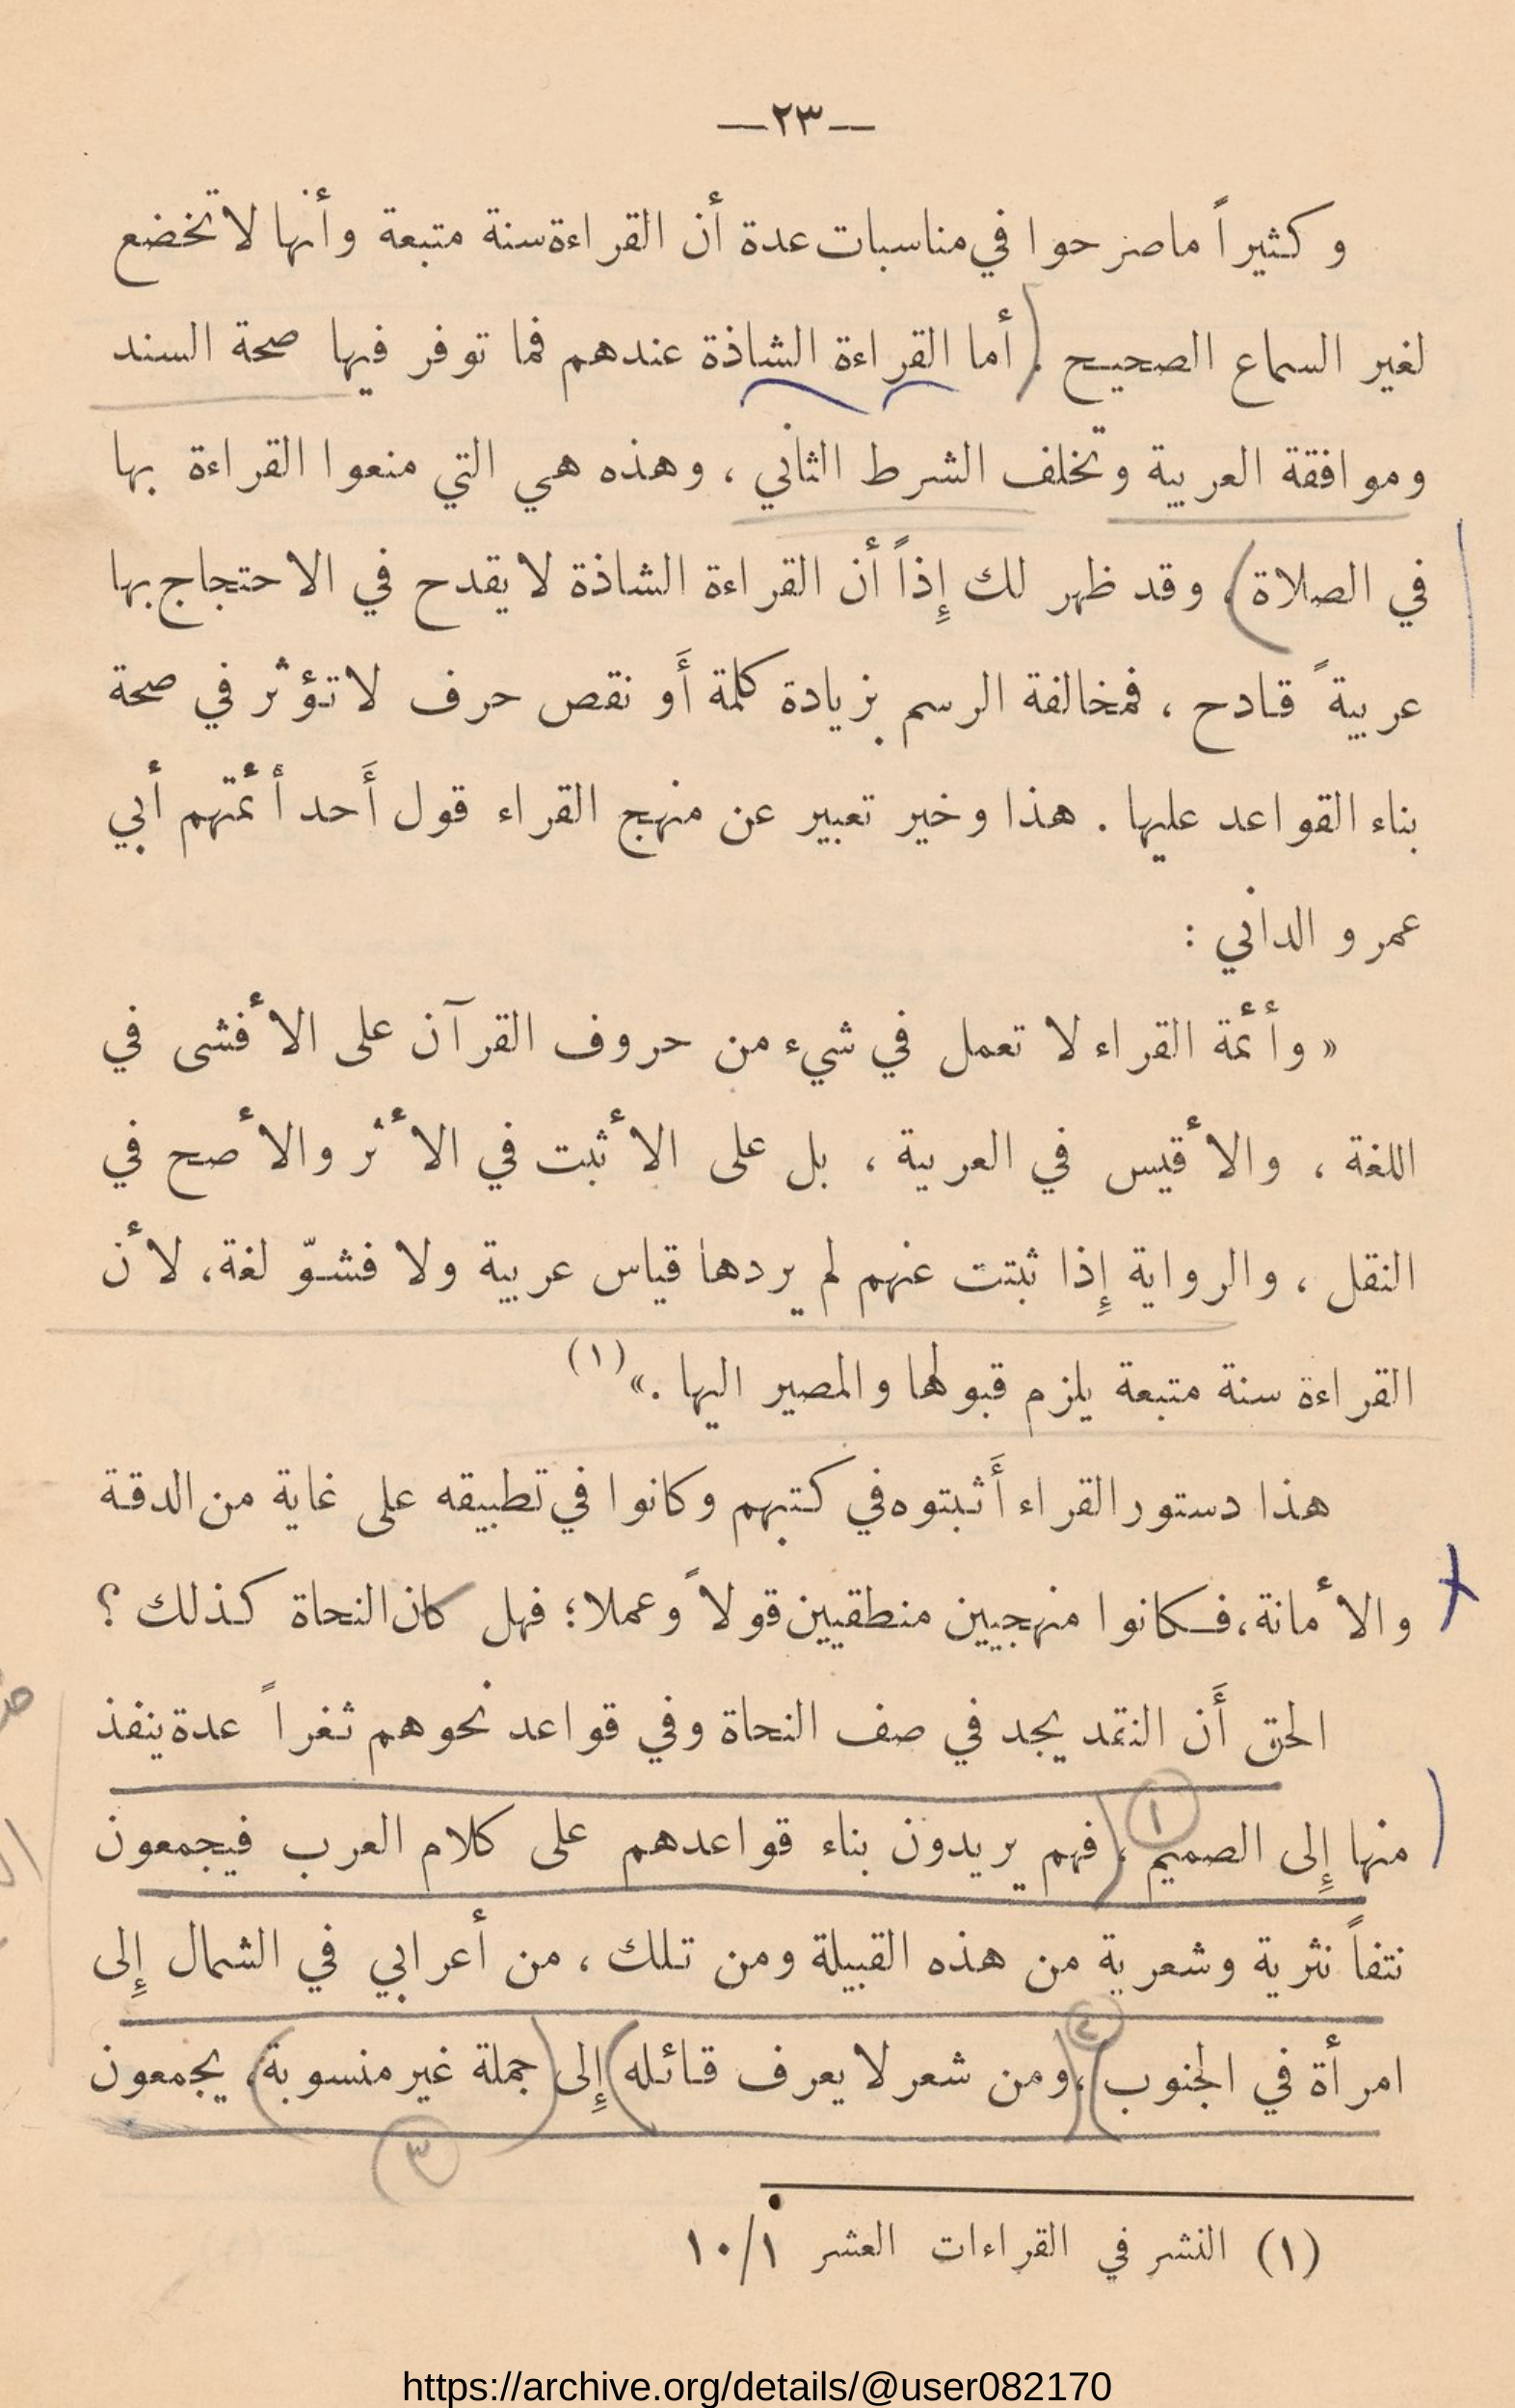 —٢٣—
وكثيراً ما صرحوا في مناسبات عدة أن القراءة سنة متبعة وأنها لا تخضع
لغير السماع الصحيح . أما القراءة الشاذة عندهم فما توفر فيها صحة السند
وموافقة العربية وتخلف الشرط الثاني ، وهذه هي التي منعوا القراءة بها
في الصلاة ، وقد ظهر لك إِذاً أن القراءة الشاذة لا يقدح في الاحتجاج بها
عربيةً قادح ، فمخالفة الرسم بزيادة كلمة أَو نقص حرف لا تؤثر في صحة
بناء القواعد عليها . هذا وخير تعبير عن منهج القراء قول أَحد أئمتهم أبي
عمرو الداني :
« وأئمة القراء لا تعمل في شيء من حروف القرآن على الأفشى في
اللغة ، والأقيس في العربية ، بل على الأثبت في الأثر والأصح في
النقل ، والرواية إِذا ثبتت عنهم لم يردها قياس عربية ولا فشوّ لغة، لأن
القراءة سنة متبعة يلزم قبولها والمصير اليها .» (١)
هذا دستور القراء أَثبتوه في كتبهم وكانوا في تطبيقه على غاية من الدقة
والأمانة، فكانوا منهجيين منطقيين قولاً وعملا؛ فهل كان النحاة كذلك ؟
الحق أَن النقد يجد في صف النحاة وفي قواعد نحوهم ثغراً عدة ينفذ
١
منها إِلى الصميم ، فهم يريدون بناء قواعدهم على كلام العرب فيجمعون
نتفاً نثرية وشعرية من هذه القبيلة ومن تلك ، من أعرابي في الشمال إِلى
٢
امرأة في الجنوب ، ومن شعر لا يعرف قائله إِلى جملة غير منسوبة ، يجمعون
٣
(١) النشر في القراءات العشر ١/١٠
https://archive.org/details/@user082170